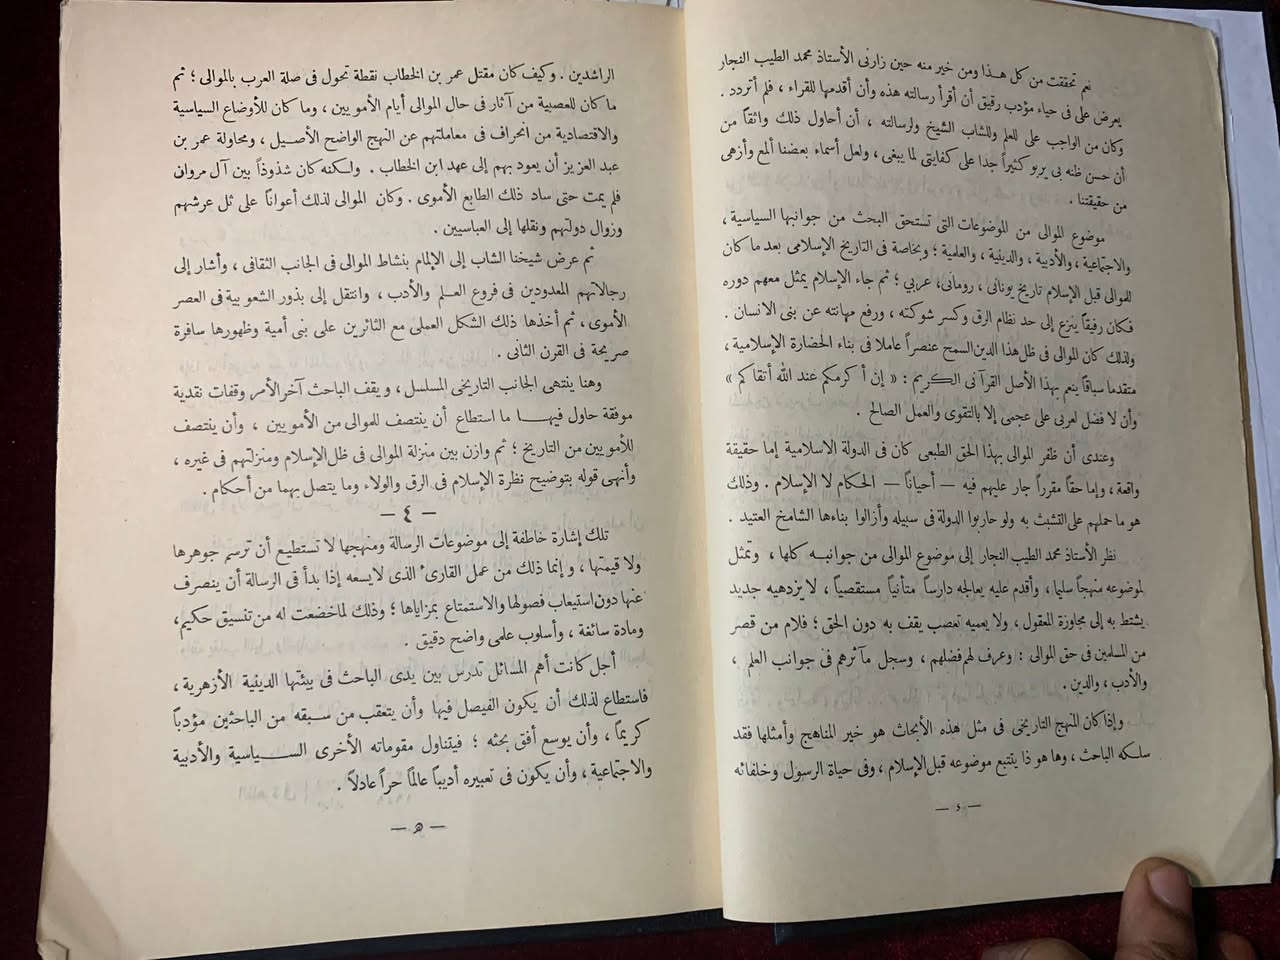 نعم تحققت من كل هذا ومن خير منه حين زارنى الأستاذ محمد الطيب النجار
يعرض على فى حياء مؤدب رقيق أن أقرأ رسالته هذه وأن أقدمها للقراء ، فلم أتردد .
وكان من الواجب على للعلم وللشاب الشيخ ولرسالته ، أن أحاول ذلك واثقاً من
أن حسن ظنه بى يربو كثيراً جدا على كفايتى لما يبغى ، ولعل أسماء بعضنا ألمع وأزهى
من حقيقتنا .
موضوع الموالى من الموضوعات التى تستحق البحث من جوانبها السياسية ،
والاجتماعية ، والأدبية ، والدينية ، والعلمية ؛ وبخاصة فى التاريخ الإسلامى بعد ما كان
للموالى قبل الإسلام تاريخ يونانى ، رومانى ، عربي ؛ ثم جاء الإسلام يمثل معهم دوره
فكان رفيقاً ينزع إلى حد نظام الرق وكسر شوكته ، ورفع مهانته عن بنى الانسان .
ولذلك كان الموالى فى ظل هذا الدين السمح عنصراً عاملا فى بناء الحضارة الإسلامية ،
متقدما سباقاً ينعم بهذا الأصل القرآنى الكريم : « إن أكرمكم عند الله أتقاكم »
وأن لا فضل لعربى على عجمى إلا بالتقوى والعمل الصالح .
وعندى أن ظفر الموالى بهذا الحق الطبعى كان فى الدولة الاسلامية إما حقيقة
واقعة ، وإما حقاً مقرراً جار عليهم فيه — أحياناً — الحكام لا الإسلام . وذلك
هو ما حملهم على التشبث به ولو حاربوا الدولة فى سبيله وأزالوا بناءها الشامخ العتيد .
نظر الأستاذ محمد الطيب النجار إلى موضوع الموالى من جوانبه كلها ، وتمثل
لموضوعه منهجاً سليما ، وأقدم عليه يعالجه دارساً متأنياً مستقصياً ، لا يزدهيه جديد
يشتط به إلى مجاوزة المعقول ، ولا يعميه تعصب يقف به دون الحق ؛ فلام من قصر
من المسلمين فى حق الموالى : وعرف لهم فضلهم ، وسجل مآثرهم فى جوانب العلم ،
والأدب ، والدين .
وإذا كان المنهج التاريخى فى مثل هذه الأبحاث هو خير المناهج وأمثلها فقد
سلكه الباحث ، وها هو ذا يتتبع موضوعه قبل الإسلام ، وفى حياة الرسول وخلفائه
— ء —
الراشدين . وكيف كان مقتل عمر بن الخطاب نقطة تحول فى صلة العرب بالموالى ؛ ثم
ما كان للعصبية من آثار فى حال الموالى أيام الأمويين ، وما كان للأوضاع السياسية
والاقتصادية من انحراف فى معاملتهم عن النهج الواضح الأصيل ، ومحاولة عمر بن
عبد العزيز أن يعود بهم إلى عهد ابن الخطاب . ولكنه كان شذوذاً بين آل مروان
فلم يمت حتى ساد ذلك الطابع الأموى . وكان الموالى لذلك أعواناً على ثل عرشهم
وزوال دولتهم ونقلها إلى العباسيين .
ثم عرض شيخنا الشاب إلى الإلمام بنشاط الموالى فى الجانب الثقافى ، وأشار إلى
رجالاتهم المعدودين فى فروع العلم والأدب ، وانتقل إلى بذور الشعوبية فى العصر
الأموى ، ثم أخذها ذلك الشكل العملى مع الثائرين على بنى أمية وظهورها سافرة
صريحة فى القرن الثانى .
وهنا ينتهى الجانب التاريخى المسلسل ، ويقف الباحث آخر الأمر وقفات نقدية
موفقة حاول فيها ما استطاع أن ينتصف للموالى من الأمويين ، وأن ينتصف
للأمويين من التاريخ ؛ ثم وازن بين منزلة الموالى فى ظل الإسلام ومنزلتهم فى غيره ،
وأنهى قوله بتوضيح نظرة الإسلام فى الرق والولاء وما يتصل بهما من أحكام .
— ٤ —
تلك إشارة خاطفة إلى موضوعات الرسالة ومنهجها لا تستطيع أن ترسم جوهرها
ولا قيمتها ، وإنما ذلك من عمل القارئ الذى لايسعه إذا بدأ فى الرسالة أن ينصرف
عنها دون استيعاب فصولها والاستمتاع بمزاياها ؛ وذلك لماخضعت له من تنسيق حكيم ،
ومادة سائغة ، وأسلوب علمى واضح دقيق .
أجل كانت أهم المسائل تدرس بين يدى الباحث فى بيئتها الدينية الأزهرية ،
فاستطاع لذلك أن يكون الفيصل فيها وأن يتعقب من سبقه من الباحثين مؤدباً
كريماً ، وأن يوسع أفق بحثه ؛ فيتناول مقوماته الأخرى السياسية والأدبية
والاجتماعية ، وأن يكون فى تعبيره أديباً عالماً حراً عادلاً .
— ه —